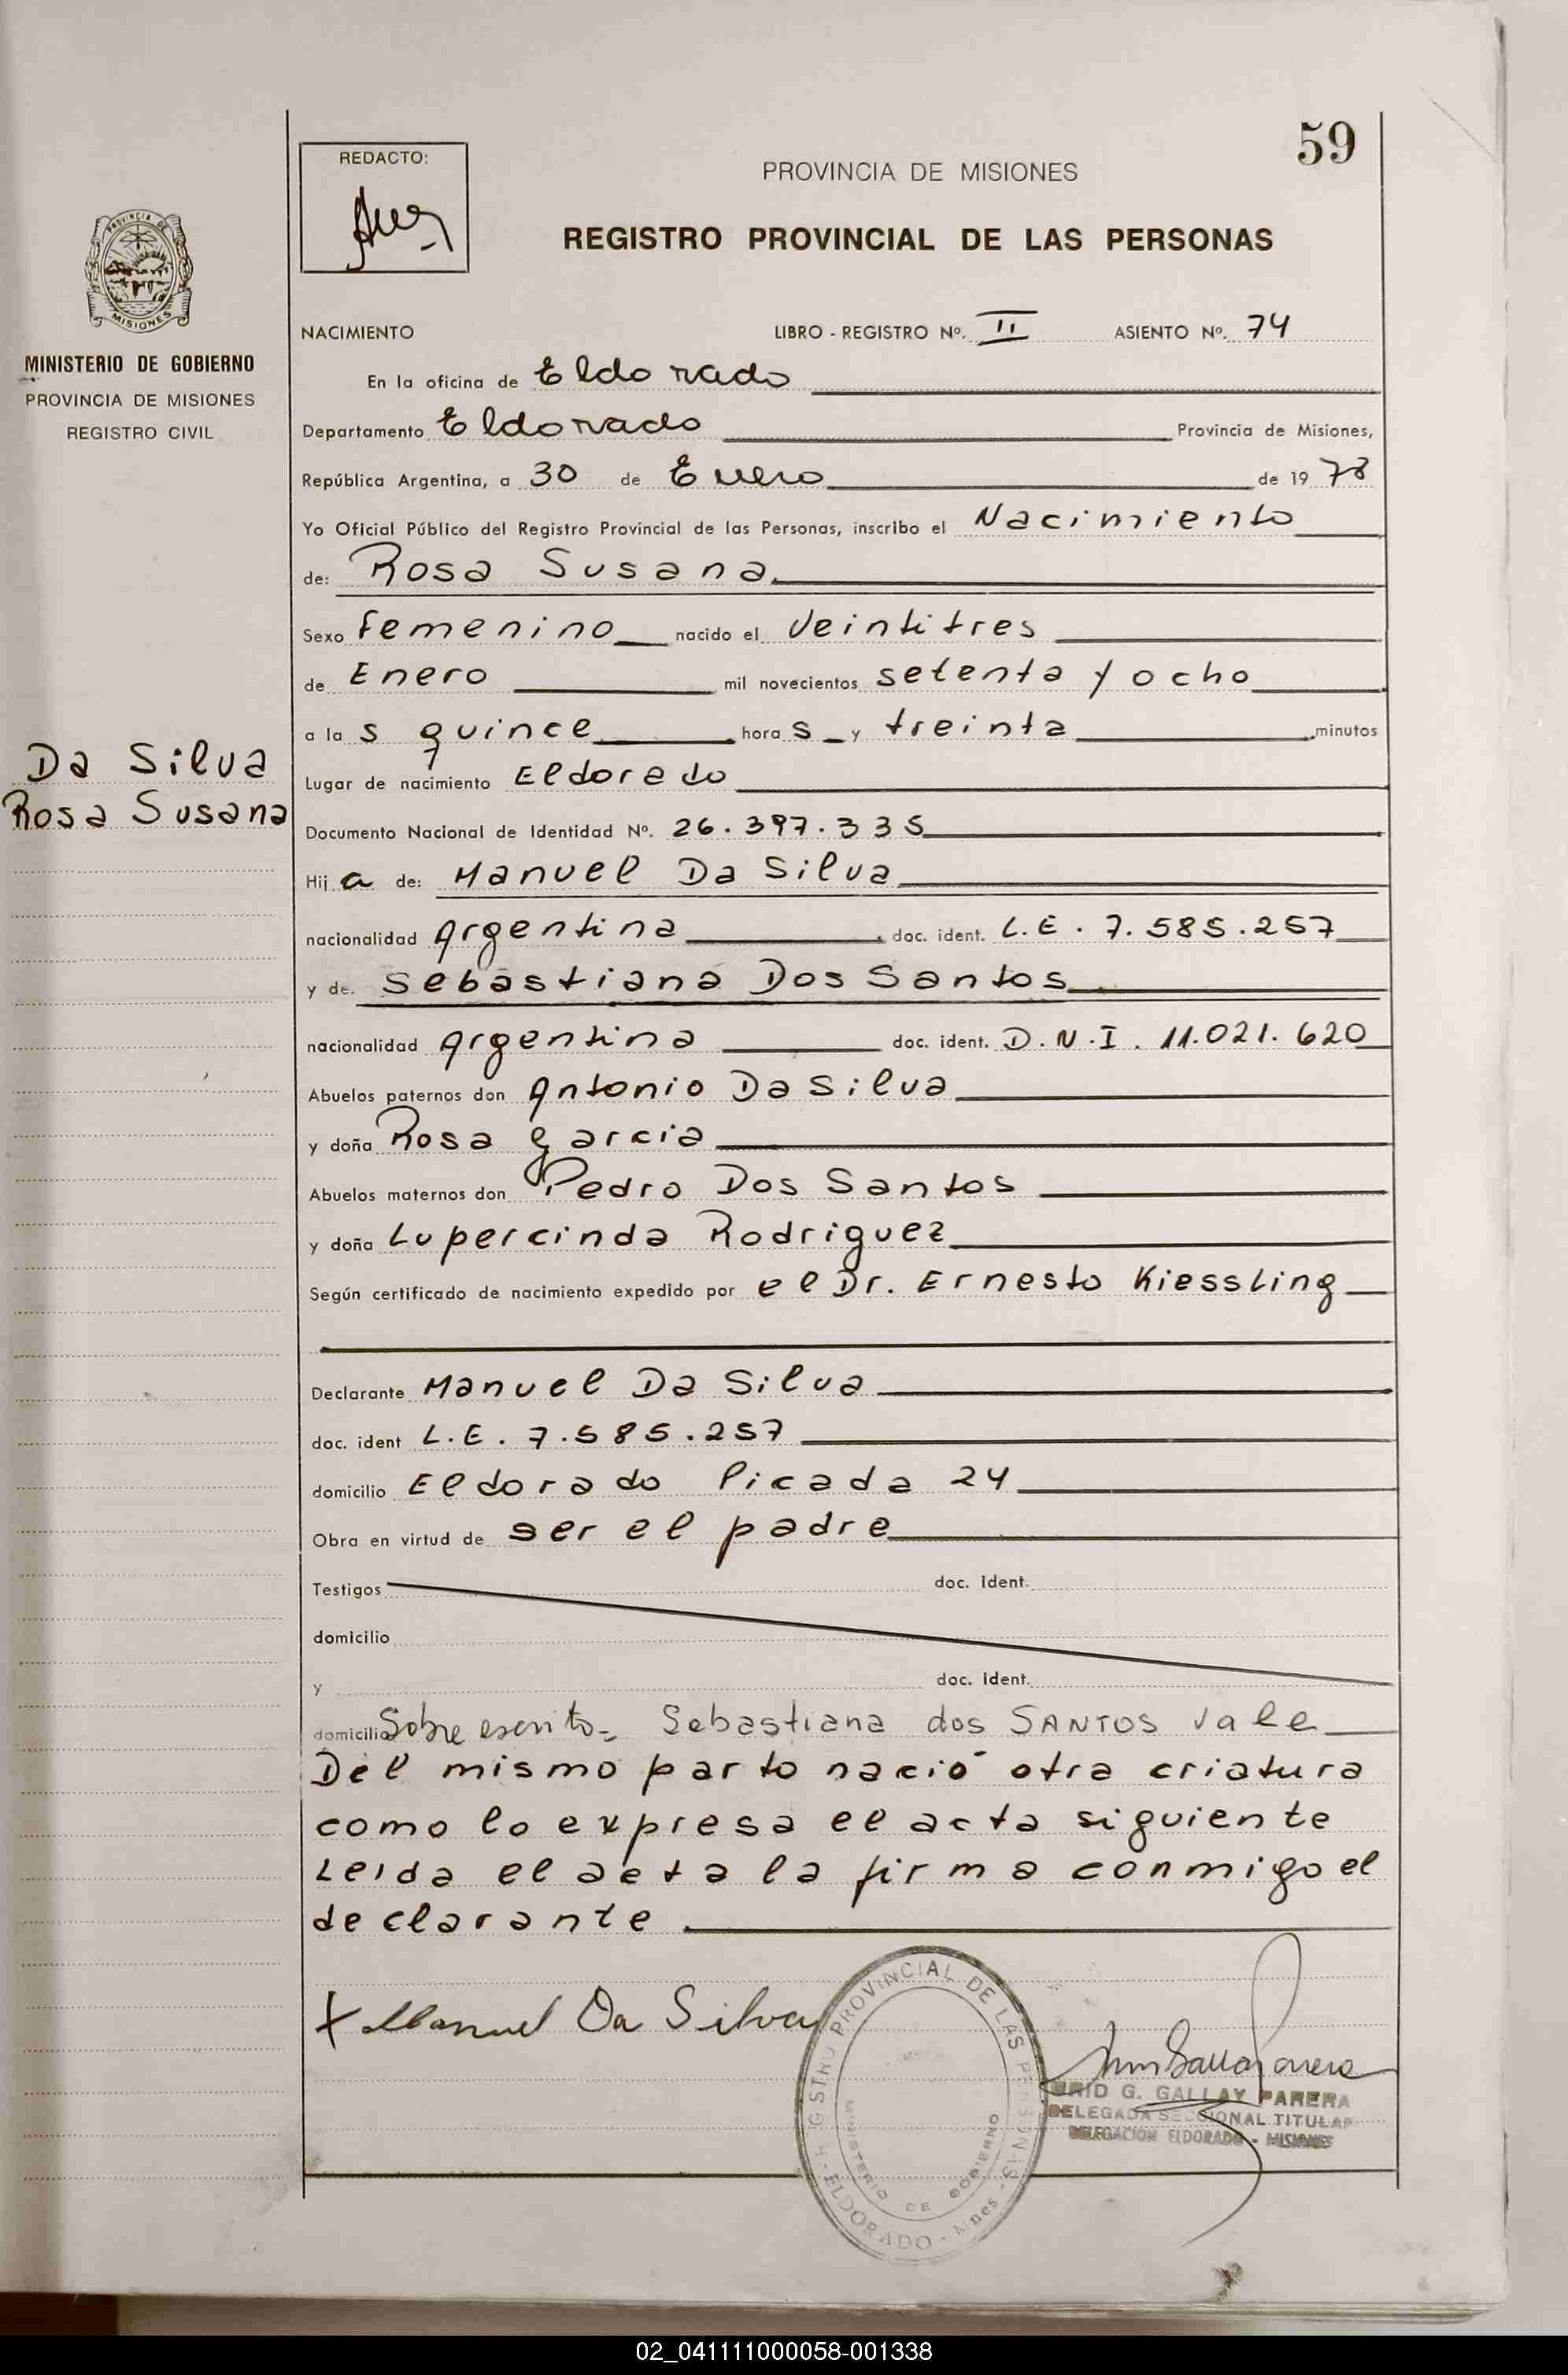 59
REDACTO:
PROVINCIA DE MISIONES
REGISTRO PROVINCIAL DE LAS PERSONAS
PROVINCIA DE
MISIONES
MINISTERIO DE GOBIERNO
PROVINCIA DE MISIONES
REGISTRO CIVIL
NACIMIENTO LIBRO - REGISTRO Nº. II ASIENTO Nº. 74
En la oficina de Eldorado
Departamento Eldorado Provincia de Misiones,
República Argentina, a 30 de Enero de 1978
Yo Oficial Público del Registro Provincial de las Personas, inscribo el Nacimiento
de: Rosa Susana
Sexo femenino nacido el Veintitres
de Enero mil novecientos setenta y ocho
a las quince horas y treinta minutos
Da Silva
Rosa Susana
Lugar de nacimiento Eldorado
Documento Nacional de Identidad Nº. 26.397.335
Hija de: Manuel Da Silva
nacionalidad Argentina doc. ident. L.E. 7.585.257
y de. Sebastiana Dos Santos
nacionalidad Argentina doc. ident. D.N.I. 11.021.620
Abuelos paternos don Antonio Da Silva
y doña Rosa Garcia
Abuelos maternos don Pedro Dos Santos
y doña Lupercinda Rodriguez
Según certificado de nacimiento expedido por el Dr. Ernesto Kiessling
Declarante Manuel Da Silva
doc. ident L.E. 7.585.257
domicilio Eldorado Picada 24
Obra en virtud de ser el padre
Testigos doc. Ident.
domicilio
y doc. ident.
domicilio Sobre escrito= Sebastiana dos SANTOS vale
Del mismo parto nació otra criatura
como lo expresa el acta siguiente
Leida el acta la firma conmigo el
declarante
X Manuel Da Silva
REGISTRO PROVINCIAL DE LAS PERSONAS
MINISTERIO DE GOBIERNO
ELDORADO - Mnes
G. GALLAY PARERA
DELEGADA SECCIONAL TITULAR
DELEGACION ELDORADO - MISIONES
02_041111000058-001338